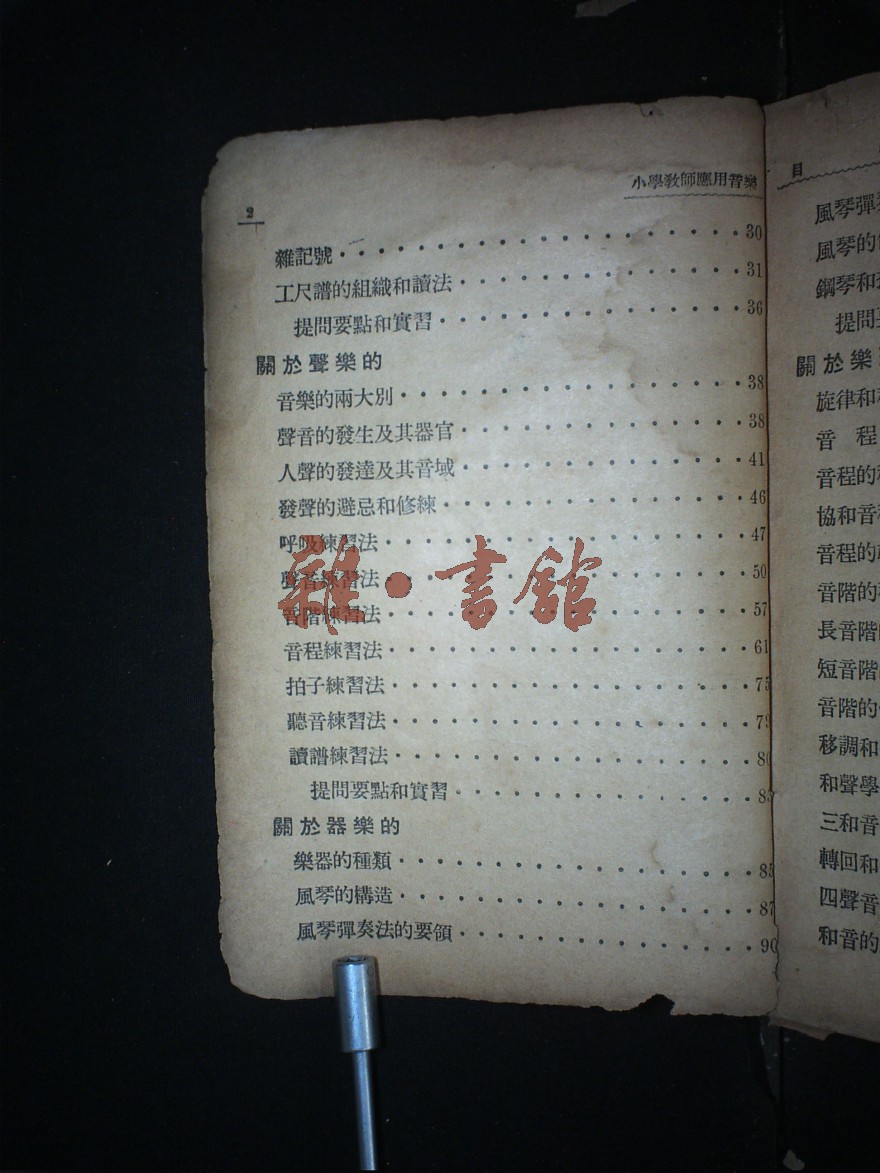 小學教師應用音樂
2
雜記號 · · · · · · · · · · · · · · · · · · · 30
工尺譜的組織和讀法 · · · · · · · · · · · · · 31
提問要點和實習 · · · · · · · · · · · · · · 36
關於聲樂的
音樂的兩大別 · · · · · · · · · · · · · · · · 38
聲音的發生及其器官 · · · · · · · · · · · · · 38
人聲的發達及其音域 · · · · · · · · · · · · · 41
發聲的避忌和修練 · · · · · · · · · · · · · · 46
呼吸練習法 · · · · · · · · · · · · · · · · · 47
聲音練習法 · · · · · · · · · · · · · · · · · 50
音階練習法 · · · · · · · · · · · · · · · · · 57
音程練習法 · · · · · · · · · · · · · · · · · 61
拍子練習法 · · · · · · · · · · · · · · · · · 75
聽音練習法 · · · · · · · · · · · · · · · · · 79
讀譜練習法 · · · · · · · · · · · · · · · · · 80
提問要點和實習 · · · · · · · · · · · · · · 83
關於器樂的
樂器的種類 · · · · · · · · · · · · · · · · · 85
風琴的構造 · · · · · · · · · · · · · · · · · 87
風琴彈奏法的要領 · · · · · · · · · · · · · · 90
雜·書館
目
風琴彈
風琴的
鋼琴和
提問
關於樂
旋律和
音程
音程的
協和音
音程的
音階的
長音階
短音階
音階的
移調和
和聲學
三和音
轉回和
四聲音
和音的